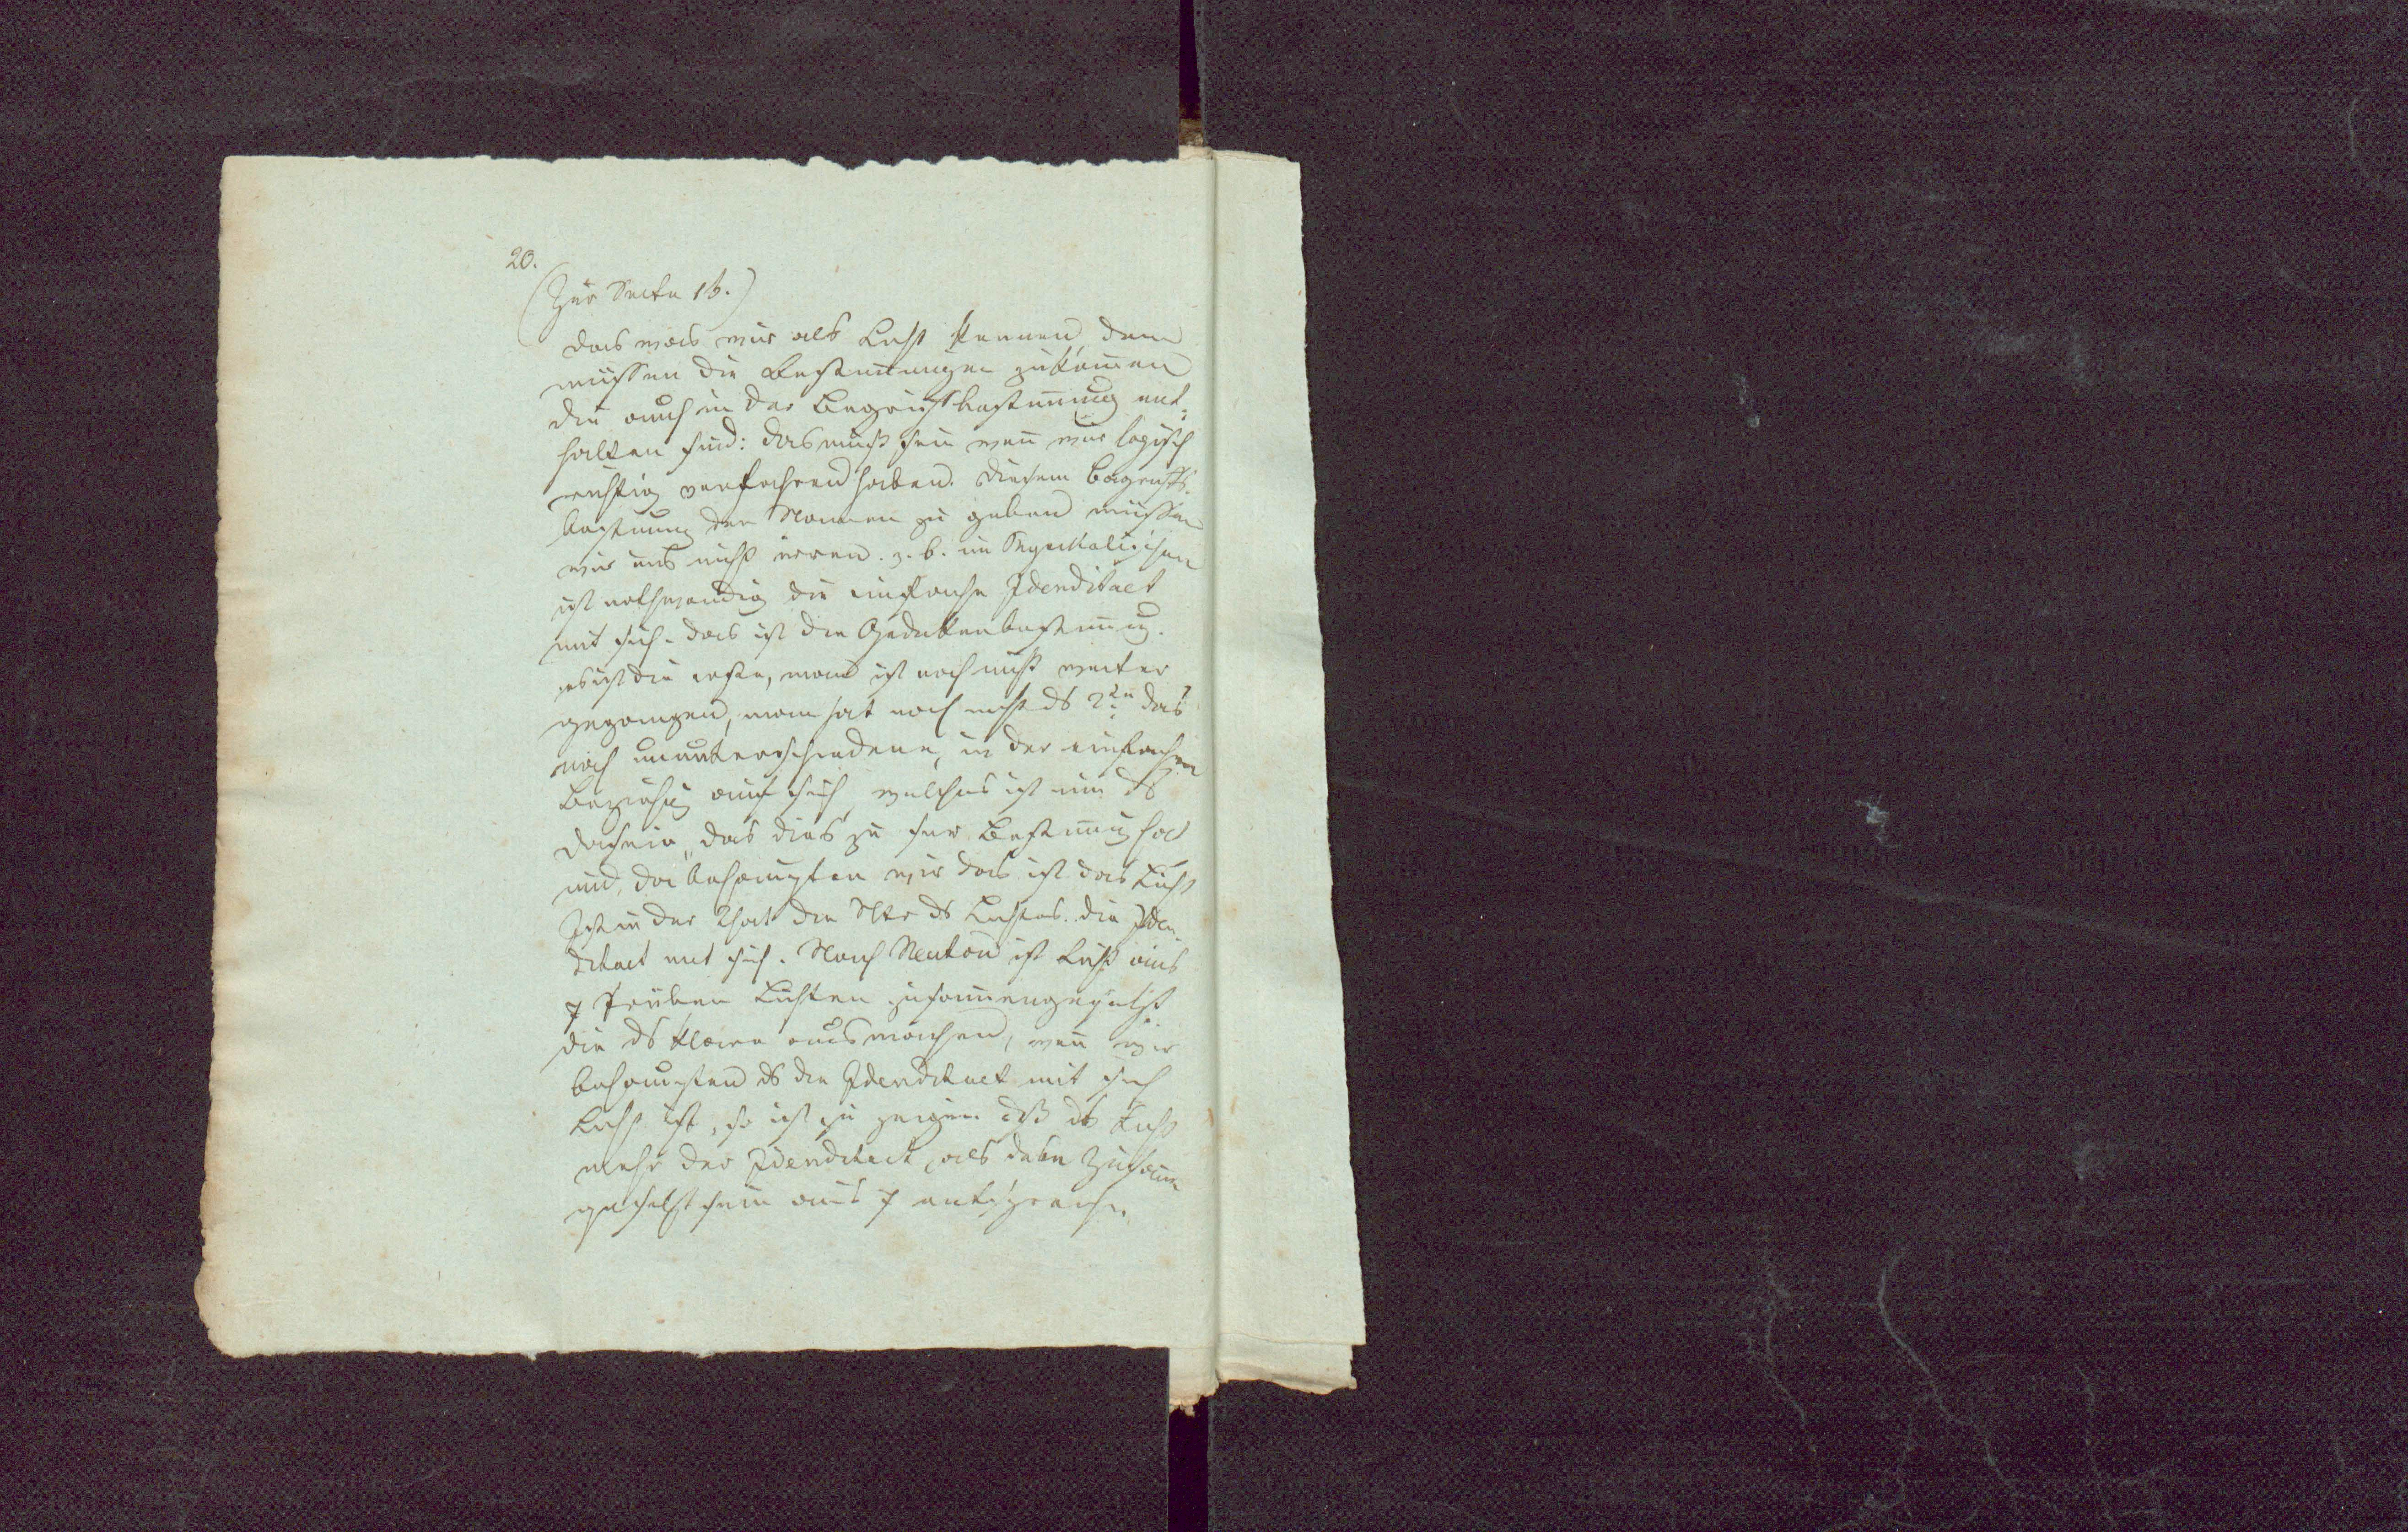 20.
(Zur Seite 16.)
das was wir als Licht kennen, dem
müssen die Bestim̄ungen zukom̄en
die auch in der Begriffsbestim̄ung ent-
halten sind: das muß sein wen̄ wir logisch
richtig verfahren haben. diesem Begriffs-
bestim̄ung den Namen zu geben müssen
wir uns nicht irren. z. b. im Physikalischen
ist nothwendig die einfache Idenditaet
mit sich. das ist die Gedankenbestim̄ung.
es ist die erste, man ist noch nicht weiter
gegangen, man hat noch nicht ds 2te das
noch ununterschiedene, in der einfachen
Beziehung auf sich, welches ist nun ds
Dasein, das dies zu sr Bestim̄ung hat
und, da behaupten wir das ist das Licht
Ist in der That die Ntr ds Lichtes. die Iden-
ditaet mit sich. Nach Neuton ist Licht aus
7 trüben Lichten zusam̄engesetzt
die ds klare ausmachen, wen̄ wir
behaupten ds die Idenditaet mit sich
Licht ist, so ist zu zeigen dß ds Licht
mehr der Idenditaet, als dem Zusam̄en
gesetzt sein aus 7 entspreche.